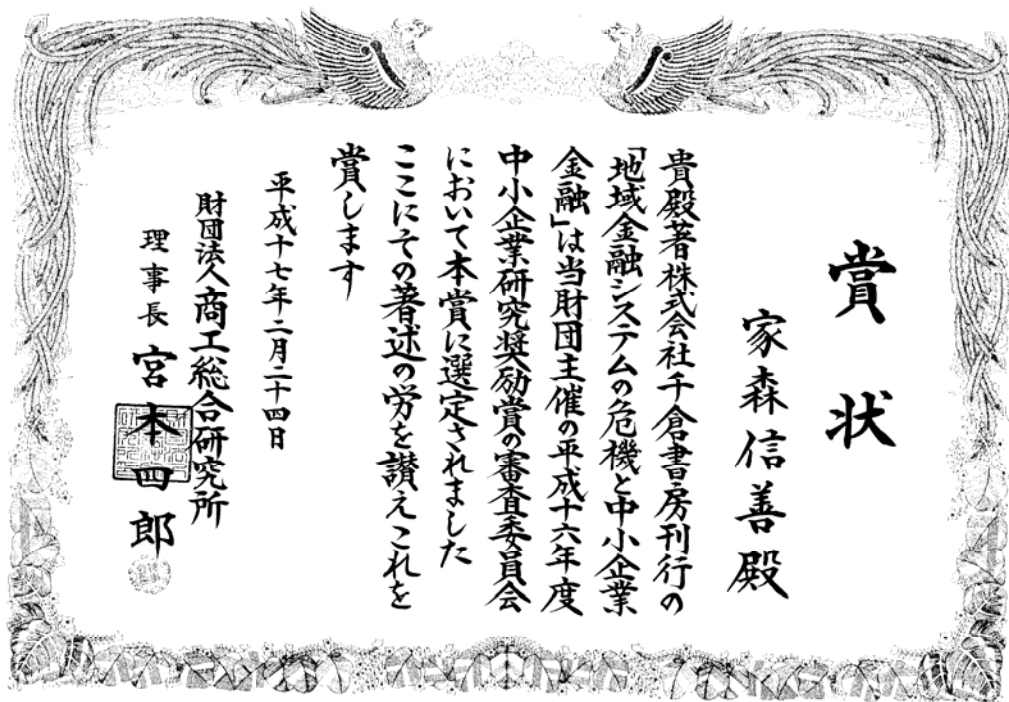 賞状
家森信善殿
貴殿著株式会社千倉書房刊行の
「地域金融システムの危機と中小企業
金融」は当財団主催の平成十六年度
中小企業研究奨励賞の審査委員会
において本賞に選定されました
ここにその著述の労を讃えこれを
賞します
平成十七年二月二十四日
財団法人商工総合研究所
理事長 宮本四郎